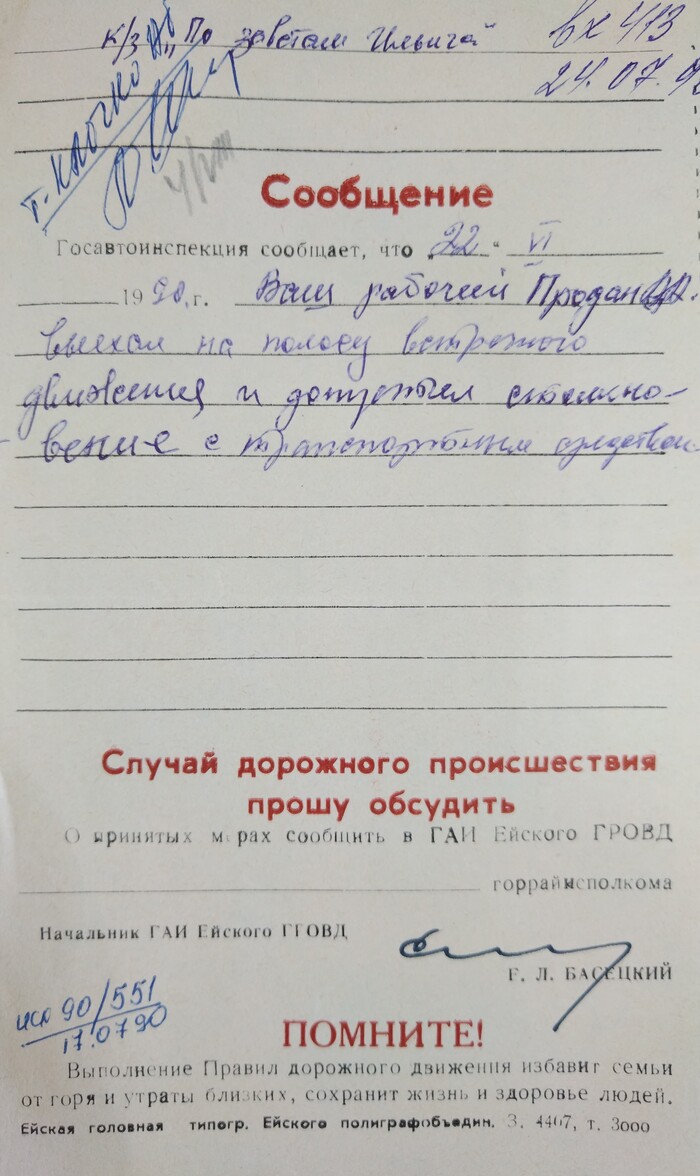 к/з „По заветам Ильича“ вх 413
24.07.90
т. Клочко
Сообщение
Госавтоинспекция сообщает, что „22“ VI
1990 г. Ваш рабочий Продан
выехал на полосу встречного
движения и допустил столкно-
вение с транспортным средством
Случай дорожного происшествия
прошу обсудить
О принятых мерах сообщить в ГАИ Ейского ГРОВД
горрайисполкома
Начальник ГАИ Ейского ГРОВД
Е. Л. БАСЕЦКИЙ
исх 90/551
17.07.90
ПОМНИТЕ!
Выполнение Правил дорожного движения избавит семьи
от горя и утраты близких, сохранит жизнь и здоровье людей.
Ейская головная типогр. Ейского полиграфобъедин. З. 4467, т. 3000